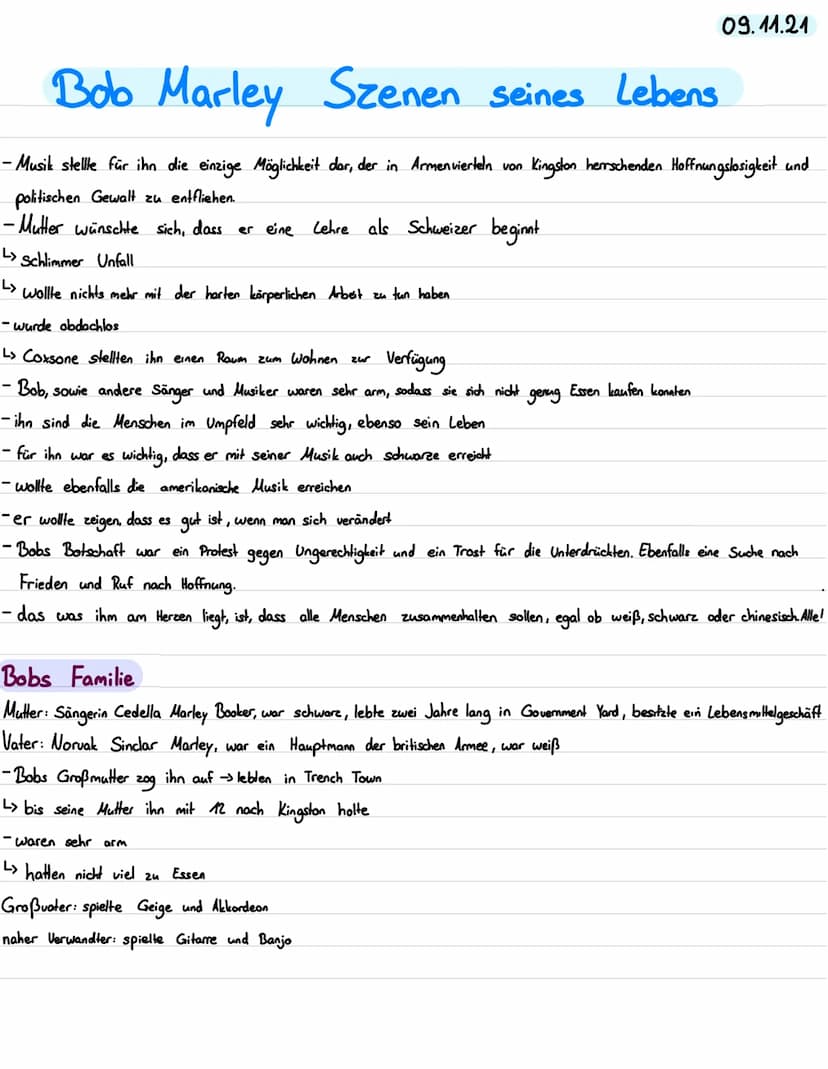 09.11.21
Bob Marley Szenen seines Lebens
- Musik stellte für ihn die einzige Möglichkeit dar, der in Armenvierteln von Kingston herrschenden Hoffnungslosigkeit und
politischen Gewalt zu entfliehen.
- Mutter wünschte sich, dass er eine Lehre als Schweizer beginnt
↳ Schlimmer Unfall
↳ wollte nichts mehr mit der harten körperlichen Arbeit zu tun haben
- wurde obdachlos
↳ Coxsone stellten ihn einen Raum zum Wohnen zur Verfügung
- Bob, sowie andere Sänger und Musiker waren sehr arm, sodass sie sich nicht genug Essen kaufen konnten
- ihn sind die Menschen im Umpfeld sehr wichtig, ebenso sein Leben
- für ihn war es wichtig, dass er mit seiner Musik auch schwarze erreicht
- wollte ebenfalls die amerikanische Musik erreichen
- er wollte zeigen, dass es gut ist, wenn man sich verändert
- Bobs Botschaft war ein Protest gegen Ungerechtigkeit und ein Trost für die Unterdrückten. Ebenfalls eine Suche nach
Frieden und Ruf nach Hoffnung.
- das was ihm am Herzen liegt, ist, dass alle Menschen zusammenhalten sollen, egal ob weiß, schwarz oder chinesisch. Alle!
Bobs Familie
Mutter: Sängerin Cedella Marley Booker, war schwarz, lebte zwei Jahre lang in Government Yard, besitzte ein Lebensmittelgeschäft
Vater: Norvak Sinclar Marley, war ein Hauptmann der britischen Armee, war weiß
- Bobs Großmutter zog ihn auf → lebten in Trench Town
↳ bis seine Mutter ihn mit 12 nach Kingston holte
- waren sehr arm
↳ hatten nicht viel zu Essen
Großvater: spielte Geige und Akkordeon
naher Verwandter: spielte Gitarre und Banjo